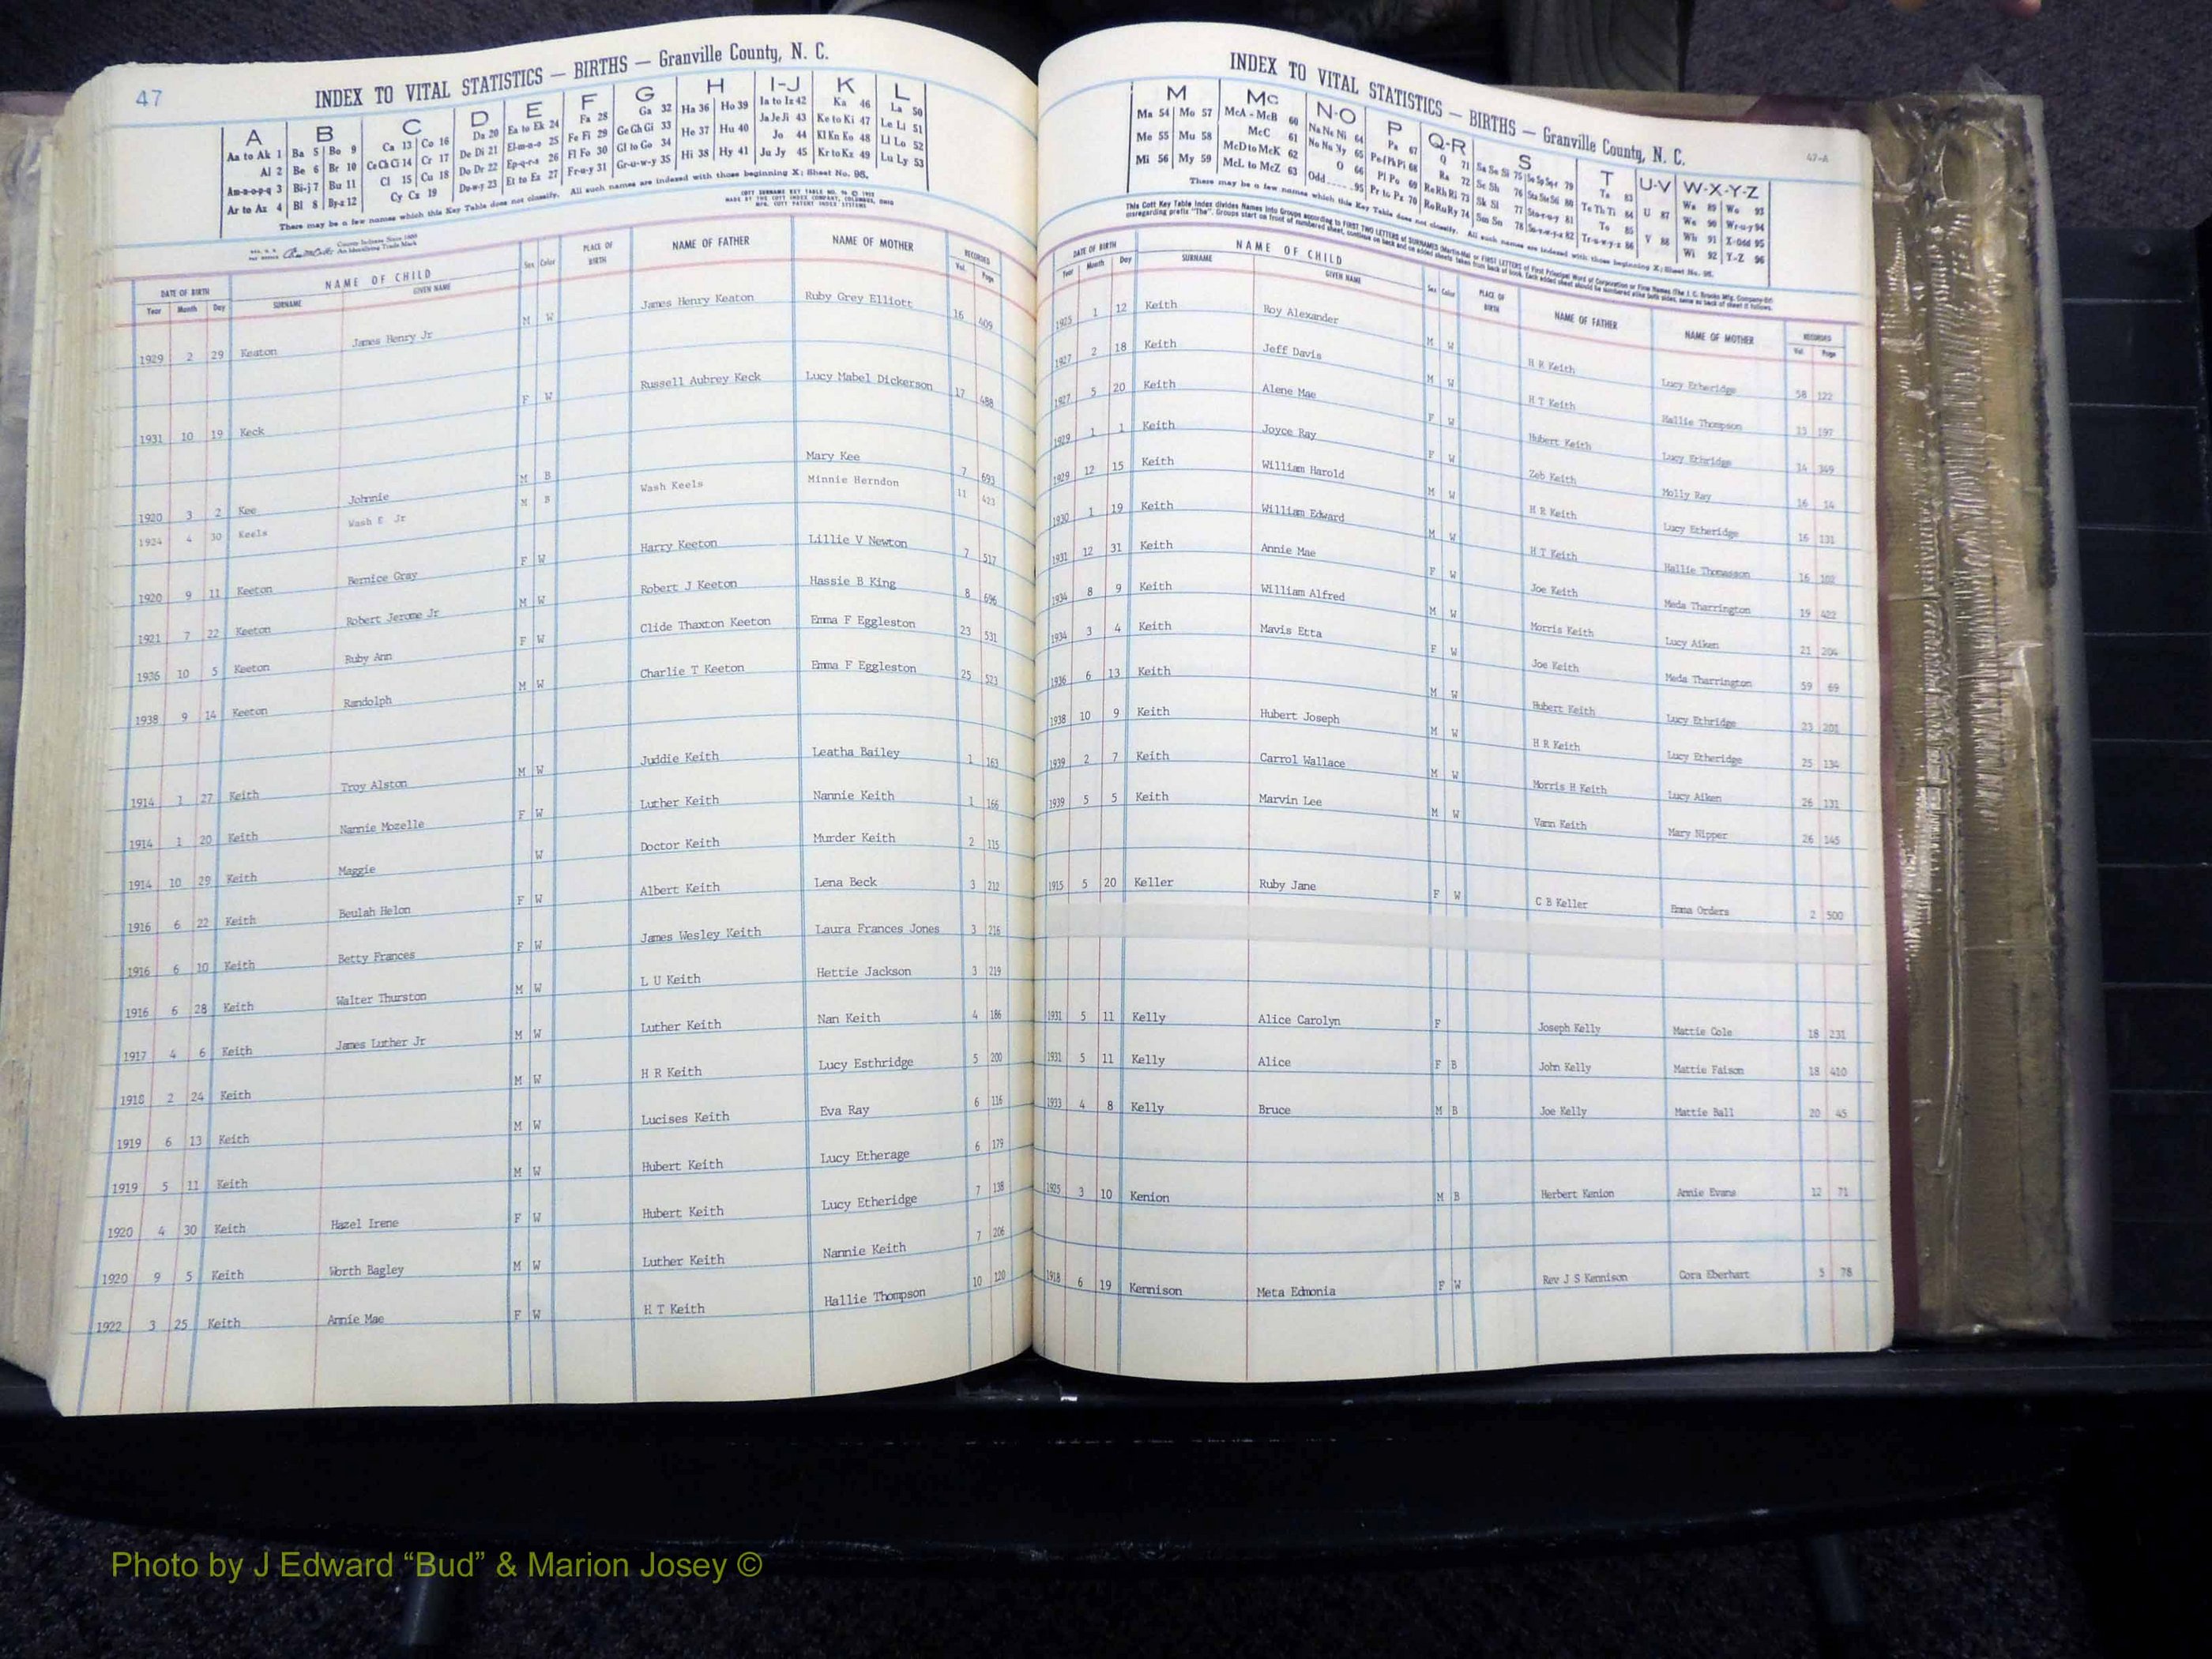 47
INDEX TO VITAL STATISTICS — BIRTHS — Granville County, N. C.
A B C D E F G H I-J K L
Aa to Ak 1 Ba 5 Bo 9 Ca 13 Co 16 Da 20 Ea to Ek 24 Fa 28 Ga 32 Ha 36 Ho 39 Ia to Iz 42 Ka 46 La 50
Al 2 Be 6 Br 10 Ce Ch Ci 14 Cr 17 De Di 21 El-m-n-o 25 Fe Fi 29 Ge Gh Gi 33 He 37 Hu 40 Ja Je Ji 43 Ke to Ki 47 Le Li 51
Am-n-o-p-q 3 Bi-j 7 Bu 11 Cl 15 Cu 18 Do Dr 22 Ep-q-r-s 26 Fl Fo 30 Gl to Go 34 Hi 38 Hy 41 Jo 44 Kl Kn Ko 48 Ll Lo 52
Ar to Az 4 Bl 8 By-z 12 Cy Cz 19 Du-w-y 23 Et to Ez 27 Fr-u-y 31 Gr-u-w-y 35 Ju Jy 45 Kr to Kz 49 Lu Ly 53
There may be a few names which this Key Table does not classify. All such names are indexed with those beginning X; Sheet No. 95.
County Indexes Since 1888
An Identifying Trade Mark
DATE OF BIRTH NAME OF CHILD Sex Color PLACE OF BIRTH NAME OF FATHER NAME OF MOTHER RECORDED
Year Month Day SURNAME GIVEN NAME Vol. Page
1929 2 29 Keaton James Henry Jr M W James Henry Keaton Ruby Grey Elliott 16 409
1931 10 19 Keck F W Russell Aubrey Keck Lucy Mabel Dickerson 17 488
1920 3 2 Kee Johnnie M B Mary Kee 7 693
1924 4 30 Keels Wash E Jr M B Wash Keels Minnie Herndon 11 423
1920 9 11 Keeton Bernice Gray F W Harry Keeton Lillie V Newton 7 517
1921 7 22 Keeton Robert Jerome Jr M W Robert J Keeton Hassie B King 8 696
1936 10 5 Keeton Ruby Ann F W Clide Thaxton Keeton Emma F Eggleston 23 531
1938 9 14 Keeton Randolph M W Charlie T Keeton Emma F Eggleston 25 523
1914 1 27 Keith Troy Alston M W Juddie Keith Leatha Bailey 1 163
1914 1 20 Keith Nannie Mozelle F W Luther Keith Nannie Keith 1 166
1914 10 29 Keith Maggie W Doctor Keith Murder Keith 2 115
1916 6 22 Keith Beulah Helon F W Albert Keith Lena Beck 3 212
1916 6 10 Keith Betty Frances F W James Wesley Keith Laura Frances Jones 3 216
1916 6 28 Keith Walter Thurston M W L U Keith Hettie Jackson 3 219
1917 4 6 Keith James Luther Jr M W Luther Keith Nan Keith 4 186
1918 2 24 Keith M W H R Keith Lucy Esthridge 5 200
1919 6 13 Keith M W Lucises Keith Eva Ray 6 116
1919 5 11 Keith M W Hubert Keith Lucy Etherage 6 179
1920 4 30 Keith Hazel Irene F W Hubert Keith Lucy Etheridge 7 138
1920 9 5 Keith Worth Bagley M W Luther Keith Nannie Keith 7 206
1922 3 25 Keith Annie Mae F W H T Keith Hallie Thompson 10 120
INDEX TO VITAL STATISTICS — BIRTHS — Granville County, N. C.
47-A
M Mc N-O P Q-R S T U-V W-X-Y-Z
Ma 54 Mo 57 McA - McB 60 Na Ne Ni 64 Pa 67 Q 71 Sa Sc Si 75 Ta 83 U 87 Wa 89 Wo 93
Me 55 Mu 58 McC 61 No Nu Ny 65 Pe-f Ph Pi 68 Ra 72 Se Sh 76 Te Th Ti 84 We 90 Wr-u-y 94
Mi 56 My 59 McD to McK 62 O 66 Pl Po 69 Re Rh Ri 73 Sk Sl 77 Sto-r-u-y 81 To 85 V 88 Wh 91 X-Odd 95
McL to McZ 63 Odd 95 Pr to Pz 70 Ro Ru Ry 74 Sm Sn 78 Su-v-w-y-z 82 Tr-u-w-y-z 86 Wi 92 Y-Z 96
There may be a few names which this Key Table does not classify. All such names are indexed with those beginning X; Sheet No. 95.
DATE OF BIRTH NAME OF CHILD Sex Color PLACE OF BIRTH NAME OF FATHER NAME OF MOTHER RECORDED
Year Month Day SURNAME GIVEN NAME Vol. Page
1925 1 12 Keith Roy Alexander M W H R Keith Lucy Etheridge 58 122
1927 2 18 Keith Jeff Davis M W H T Keith Hallie Thompson 13 197
1927 5 20 Keith Alene Mae F W Hubert Keith Lucy Ethridge 14 349
1929 1 1 Keith Joyce Ray F W Zeb Keith Molly Ray 16 14
1929 12 15 Keith William Harold M W H R Keith Lucy Etheridge 16 131
1930 1 19 Keith William Edward M W H T Keith Hallie Thomasson 16 102
1931 12 31 Keith Annie Mae F W Joe Keith Meda Tharrington 19 422
1934 8 9 Keith William Alfred M W Morris Keith Lucy Aiken 21 204
1934 3 4 Keith Mavis Etta F W Joe Keith Meda Tharrington 59 69
1936 6 13 Keith M W Hubert Keith Lucy Ethridge 23 201
1938 10 9 Keith Hubert Joseph M W H R Keith Lucy Etheridge 25 134
1939 2 7 Keith Carrol Wallace M W Morris H Keith Lucy Aiken 26 131
1939 5 5 Keith Marvin Lee M W Vann Keith Mary Nipper 26 145
1915 5 20 Keller Ruby Jane F W C B Keller Emma Orders 2 500
1931 5 11 Kelly Alice Carolyn F Joseph Kelly Mattie Cole 18 231
1931 5 11 Kelly Alice F B John Kelly Mattie Faison 18 410
1933 4 8 Kelly Bruce M B Joe Kelly Mattie Ball 20 45
1925 3 10 Kenion M B Herbert Kenion Annie Evans 12 71
1918 6 19 Kennison Meta Edmonia F W Rev J S Kennison Cora Eberhart 5 78
Photo by J Edward “Bud” & Marion Josey ©